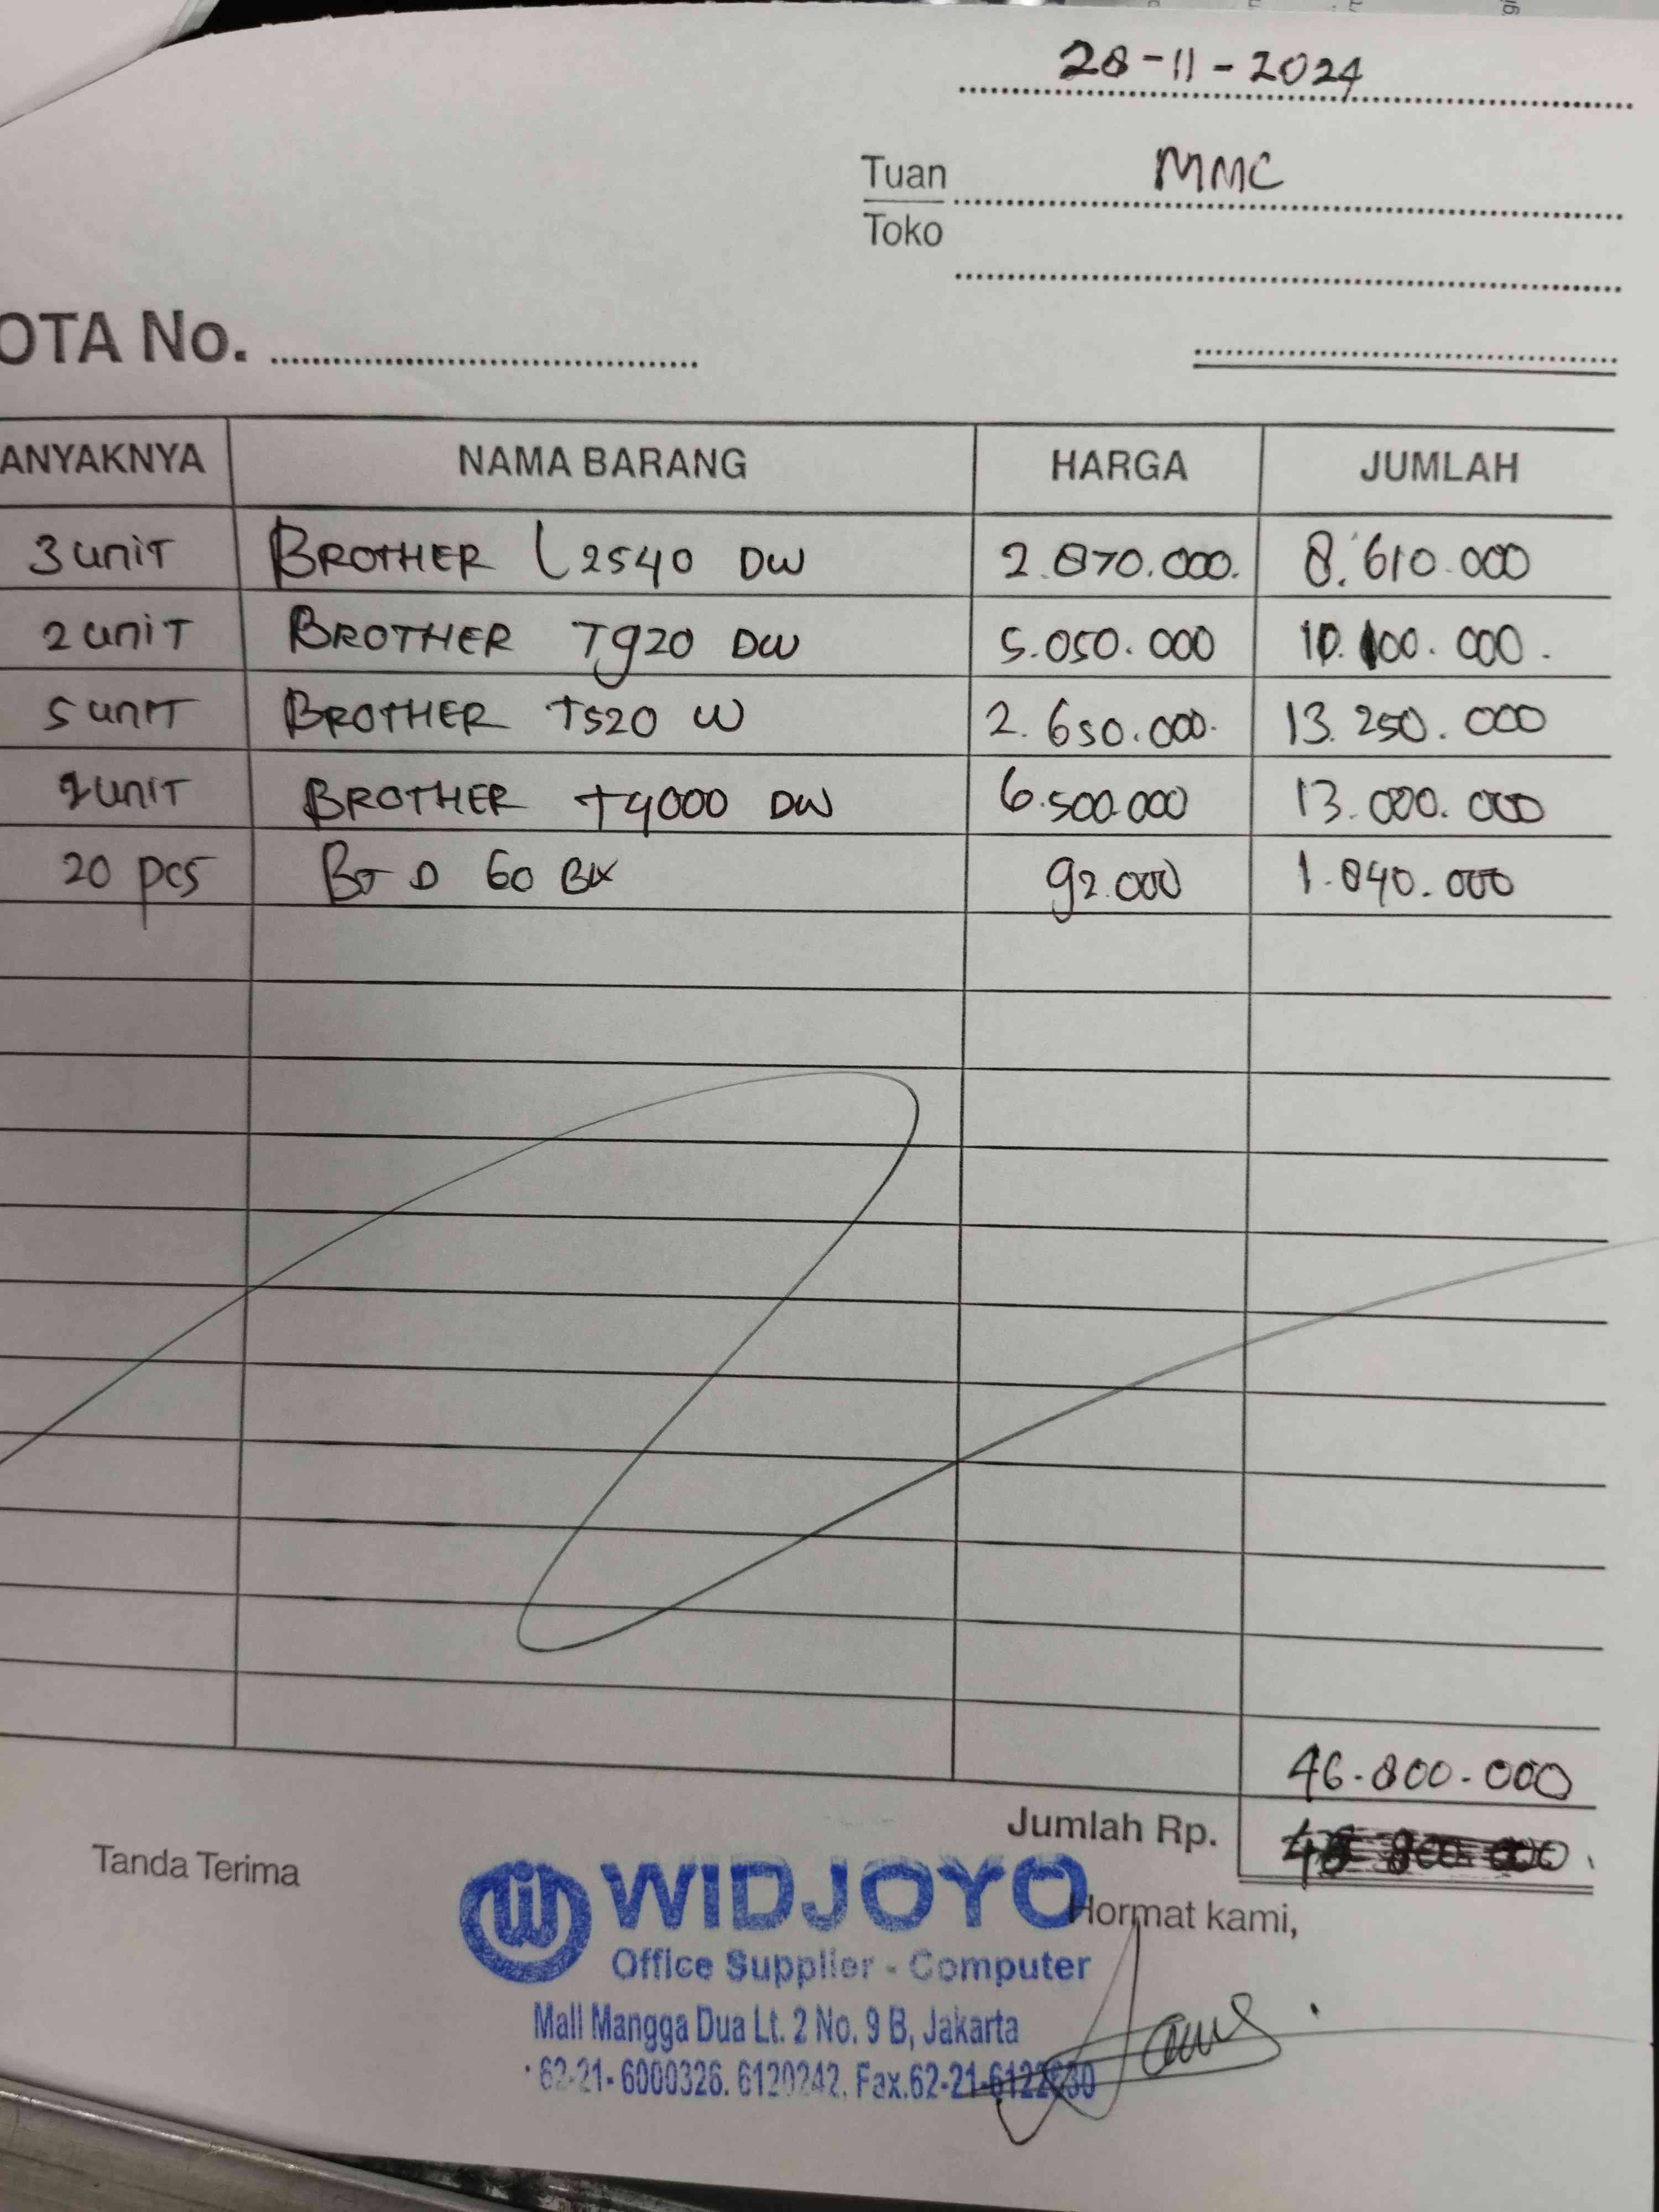 28-11-2024
Tuan MMC
Toko
OTA No.
ANYAKNYA NAMA BARANG HARGA JUMLAH
3 unit BROTHER L2540 DW 2.870.000. 8.610.000
2 unit BROTHER T920 DW 5.050.000 10.100.000.
5 unit BROTHER T520 W 2.650.000. 13.250.000
2 unit BROTHER T4000 DW 6.500.000 13.000.000
20 pcs BT D 60 BK 92.000 1.840.000
46.800.000
Jumlah Rp.
Tanda Terima
WIDJOYO
Hormat kami,
Office Supplier - Computer
Mall Mangga Dua Lt. 2 No. 9 B, Jakarta
62-21- 6000326. 6120242. Fax.62-21-